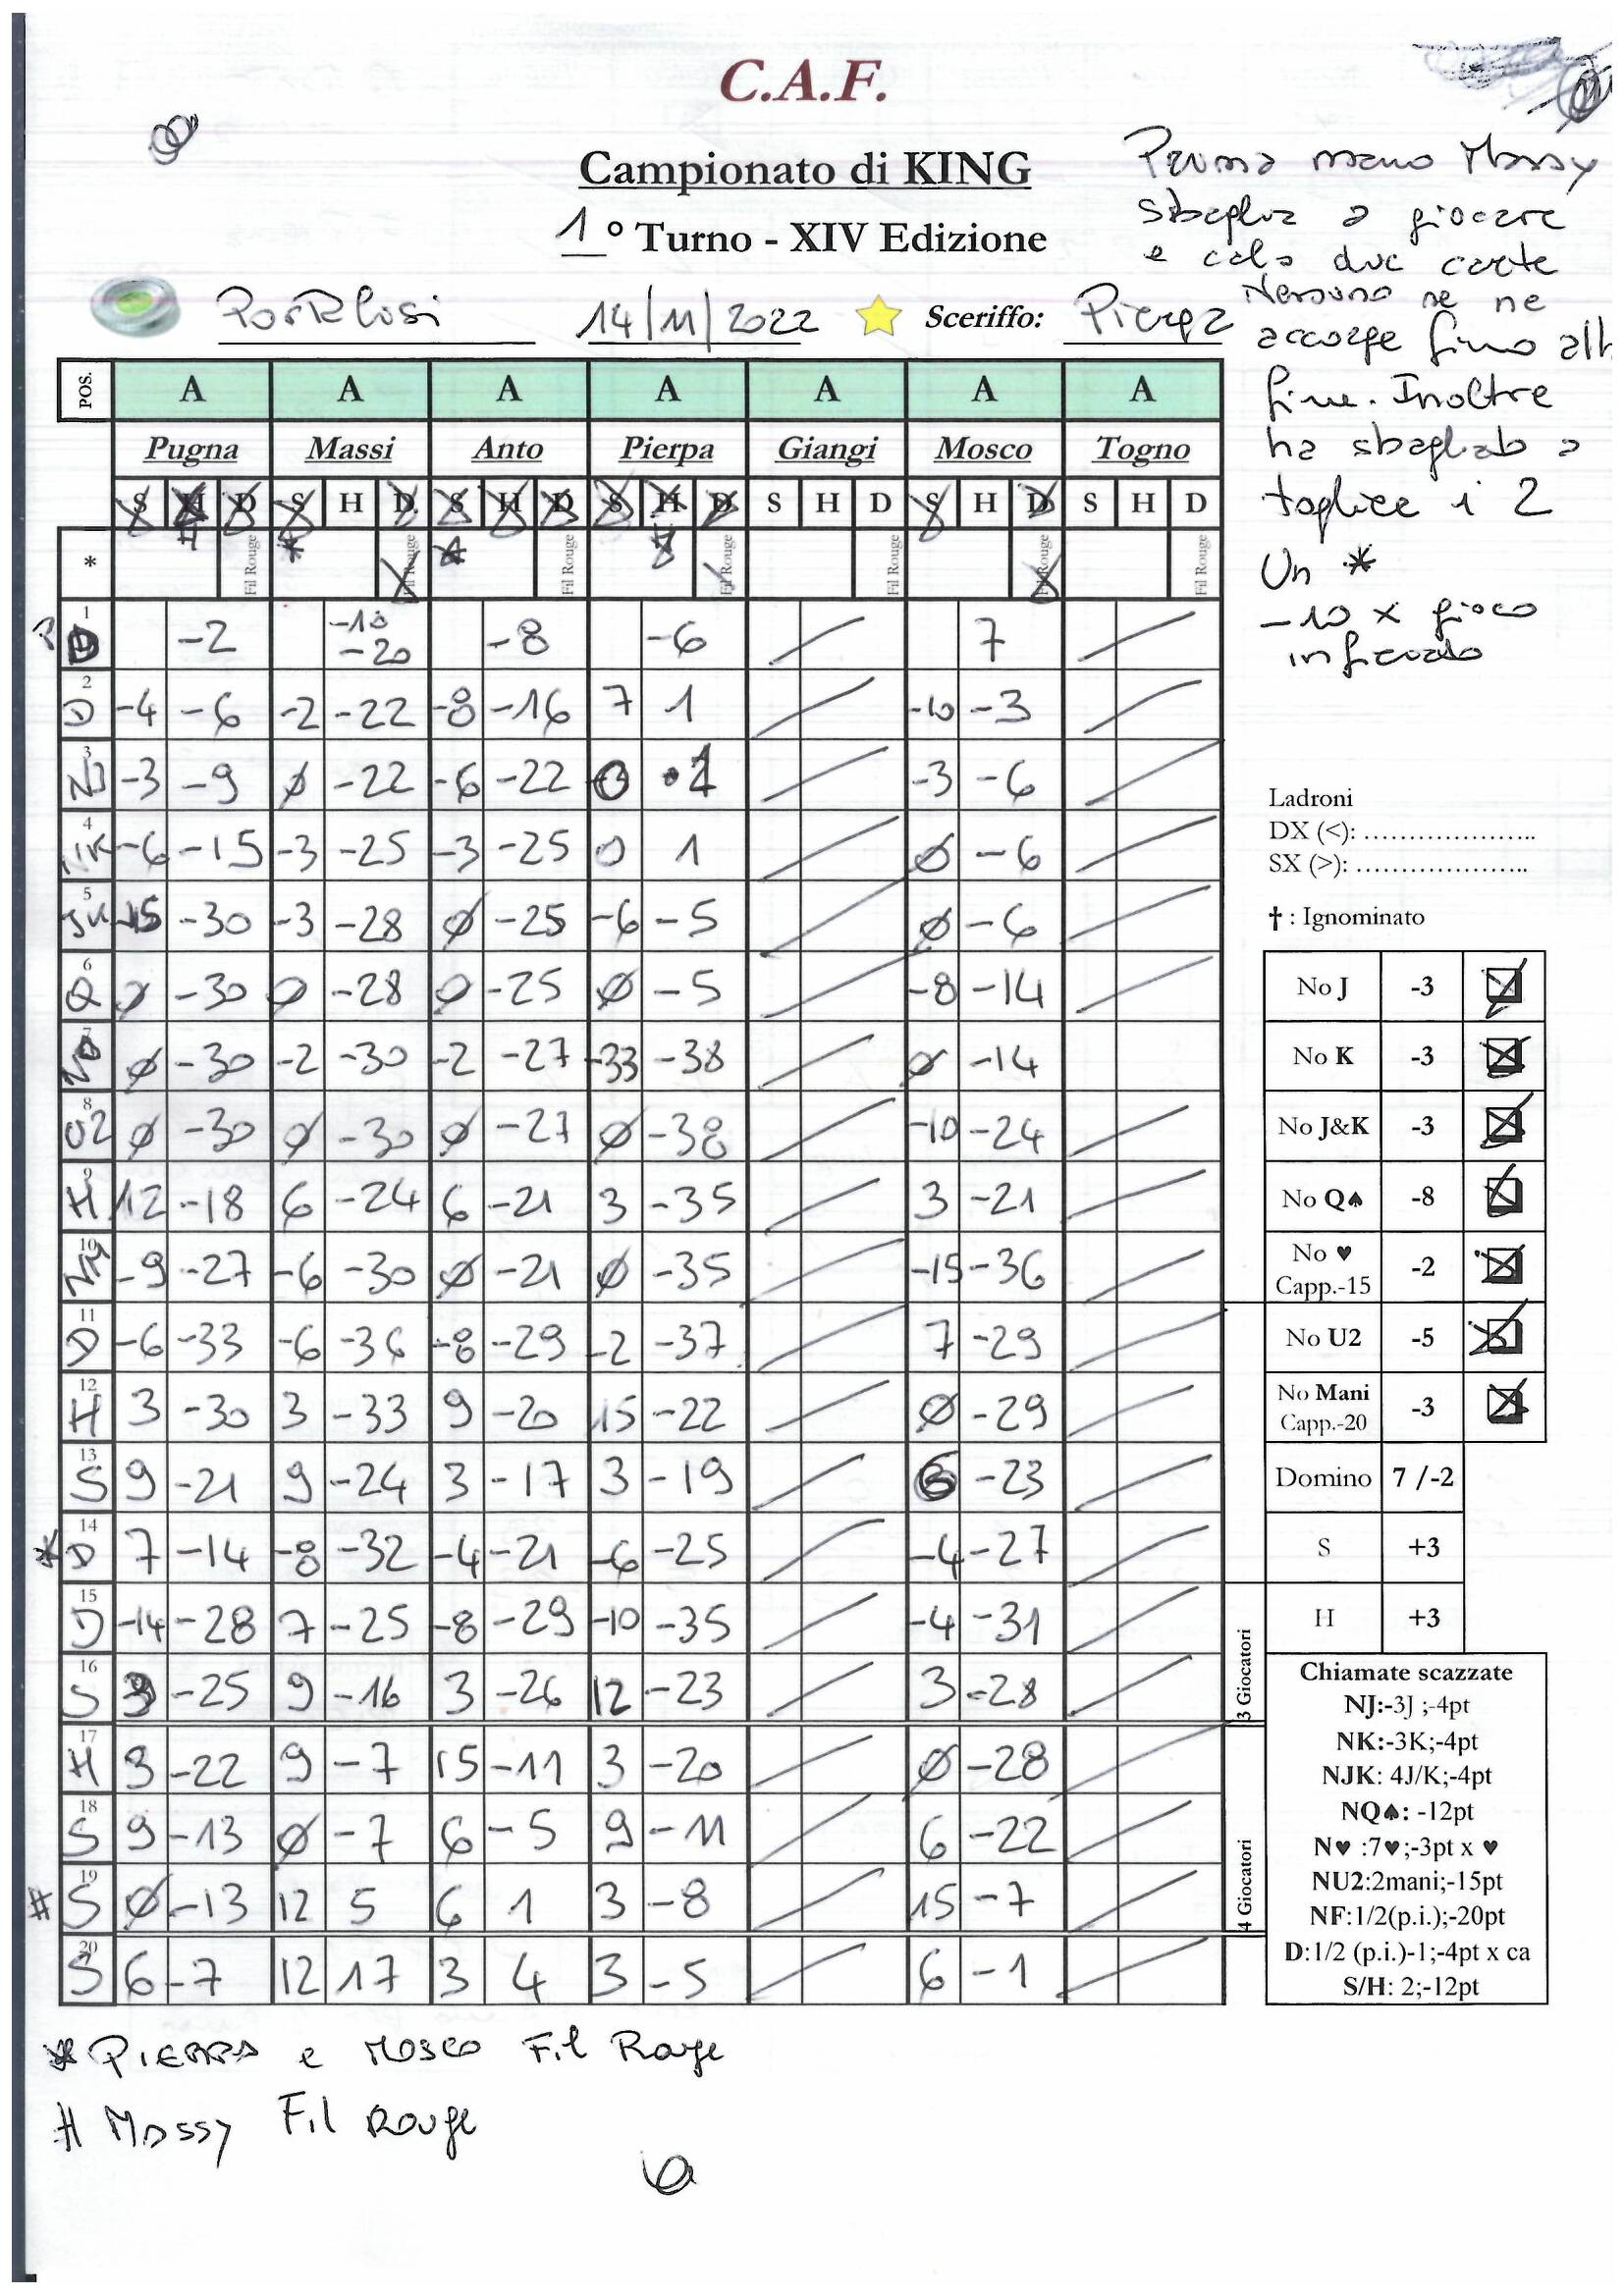 C.A.F.
Campionato di KING
1° Turno - XIV Edizione
14/11/2022 Sceriffo:
Prima mano Massy
sbaglia a giocare
e cala due carte
Nessuno se ne
accorge fino alla
fine. Inoltre
ha sbagliato a
togliere i 2
Un *
-10 x gioco
POS. A A A A A A A
Pugna Massi Anto Pierpa Giangi Mosco Togno
S H D S H D S H D S H D S H D S H D S H D
* Fil Rouge Fil Rouge Fil Rouge Fil Rouge Fil Rouge Fil Rouge Fil Rouge
1 D -2 -10 -20 -8 -6 7
2 D -4 -6 -2 -22 -8 -16 7 1 -10 -3
3 NJ -3 -9 ø -22 -6 -22 0 1 -3 -6
4 NK -6 -15 -3 -25 -3 -25 0 1 ø -6
5 JK -15 -30 -3 -28 ø -25 -6 -5 ø -6
6 Q ø -30 ø -28 ø -25 ø -5 -8 -14
7 ø -30 -2 -30 -2 -27 -33 -38 ø -14
8 U2 ø -30 ø -30 ø -27 ø -38 -10 -24
9 H 12 -18 6 -24 6 -21 3 -35 3 -21
10 -9 -27 -6 -30 ø -21 ø -35 -15 -36
11 D -6 -33 -6 -36 -8 -29 -2 -37 7 -29
12 H 3 -30 3 -33 9 -20 15 -22 ø -29
13 S 9 -21 9 -24 3 -17 3 -19 6 -23
* 14 D 7 -14 -8 -32 -4 -21 -6 -25 -4 -27
15 D -14 -28 7 -25 -8 -29 -10 -35 -4 -31
16 S 3 -25 9 -16 3 -26 12 -23 3 -28
17 H 3 -22 9 -7 15 -11 3 -20 ø -28
18 S 9 -13 ø -7 6 -5 9 -11 6 -22
# 19 S ø -13 12 5 6 1 3 -8 15 -7
20 S 6 -7 12 17 3 4 3 -5 6 -1
3 Giocatori
4 Giocatori
Ladroni
DX (<): .....................
SX (>): .....................
† : Ignominato
No J -3
No K -3
No J&K -3
No Q♠ -8
No ♥
Capp.-15 -2
No U2 -5
No Mani
Capp.-20 -3
Domino 7 /-2
S +3
H +3
Chiamate scazzate
NJ:-3J ;-4pt
NK:-3K;-4pt
NJK: 4J/K;-4pt
NQ♠: -12pt
N♥ :7♥;-3pt x ♥
NU2:2mani;-15pt
NF:1/2(p.i.);-20pt
D:1/2 (p.i.)-1;-4pt x ca
S/H: 2;-12pt
* PIERPA e Mosco Fil Rouge
# Massy Fil Rouge